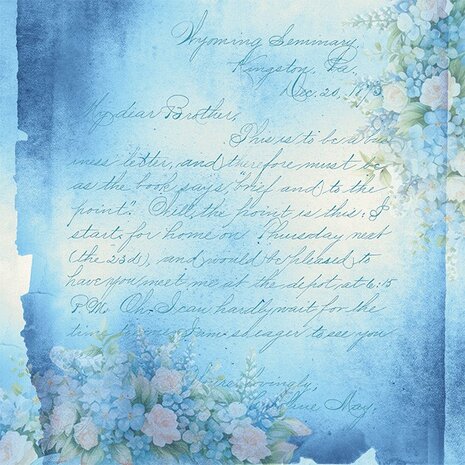 Wyoming Seminary,
Kingston, Pa.,
Dec. 20, 1893
My dear Brother,
This is to be a bus
iness letter, and therefore must be
as the book says "brief and to the
point." Well, the point is this: I
start for home on Thursday next
(the 23d), and would be pleased to
have you meet me at the depot at 6:15
P.M. Oh, I can hardly wait for the
time to come I am so eager to see you
lovingly,
May.